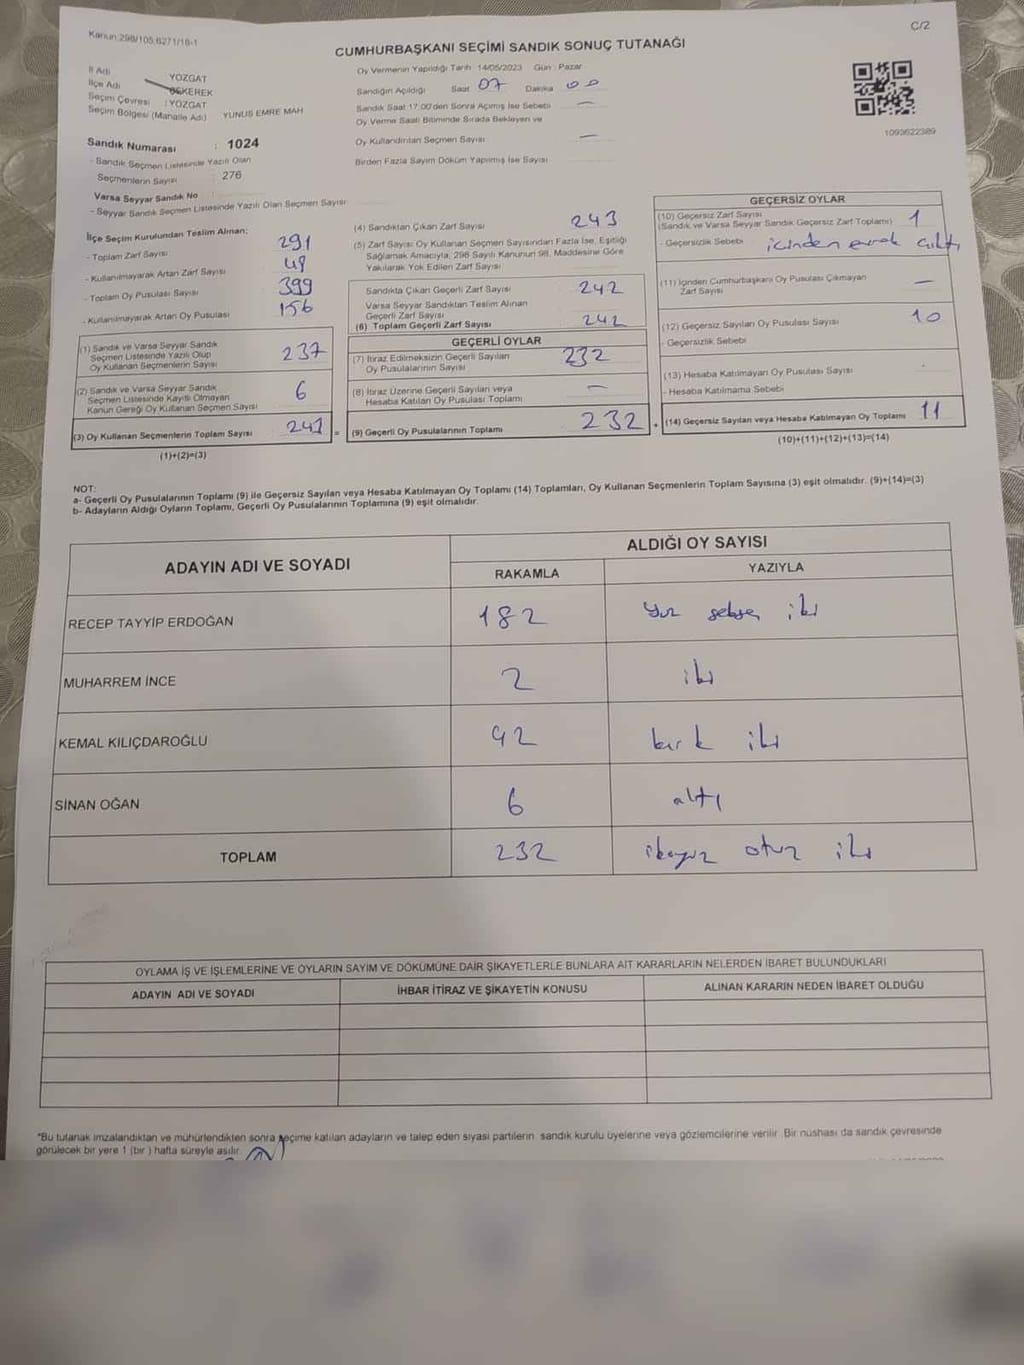 Kanun:298/105,6271/18-1
C/2
CUMHURBAŞKANI SEÇİMİ SANDIK SONUÇ TUTANAĞI
İl Adı YOZGAT
İlçe Adı ÇEKEREK
Seçim Çevresi : YOZGAT
Seçim Bölgesi (Mahalle Adı) YUNUS EMRE MAH
Sandık Numarası : 1024
- Sandık Seçmen Listesinde Yazılı Olan
Seçmenlerin Sayısı : 276
Varsa Seyyar Sandık No
- Seyyar Sandık Seçmen Listesinde Yazılı Olan Seçmen Sayısı
Oy Vermenin Yapıldığı Tarih 14/05/2023 Gün : Pazar
Sandığın Açıldığı Saat 07 Dakika 00
Sandık Saat 17:00'den Sonra Açılmış İse Sebebi —
Oy Verme Saati Bitiminde Sırada Bekleyen ve
Oy Kullandırılan Seçmen Sayısı —
Birden Fazla Sayım Döküm Yapılmış İse Sayısı
1093622389
İlçe Seçim Kurulundan Teslim Alınan:
- Toplam Zarf Sayısı 291
- Kullanılmayarak Artan Zarf Sayısı 48
- Toplam Oy Pusulası Sayısı 399
- Kullanılmayarak Artan Oy Pusulası 156
(1) Sandık ve Varsa Seyyar Sandık
Seçmen Listesinde Yazılı Olup
Oy Kullanan Seçmenlerin Sayısı 237
(2) Sandık ve Varsa Seyyar Sandık
Seçmen Listesinde Kayıtlı Olmayan
Kanun Gereği Oy Kullanan Seçmen Sayısı 6
(3) Oy Kullanan Seçmenlerin Toplam Sayısı 243 =
(1)+(2)=(3)
(4) Sandıktan Çıkan Zarf Sayısı 243
(5) Zarf Sayısı Oy Kullanan Seçmen Sayısından Fazla İse, Eşitliği
Sağlamak Amacıyla, 298 Sayılı Kanunun 98. Maddesine Göre
Yakılarak Yok Edilen Zarf Sayısı
Sandıkta Çıkan Geçerli Zarf Sayısı 242
Varsa Seyyar Sandıktan Teslim Alınan
Geçerli Zarf Sayısı
(6) Toplam Geçerli Zarf Sayısı 242
GEÇERLİ OYLAR
(7) İtiraz Edilmeksizin Geçerli Sayılan
Oy Pusulalarının Sayısı 232
(8) İtiraz Üzerine Geçerli Sayılan veya
Hesaba Katılan Oy Pusulası Toplamı —
(9) Geçerli Oy Pusulalarının Toplamı 232 +
GEÇERSİZ OYLAR
(10) Geçersiz Zarf Sayısı
(Sandık ve Varsa Seyyar Sandık Geçersiz Zarf Toplamı) 1
- Geçersizlik Sebebi içinden evrak çıktı
(11) İçinden Cumhurbaşkanı Oy Pusulası Çıkmayan
Zarf Sayısı —
(12) Geçersiz Sayılan Oy Pusulası Sayısı 10
- Geçersizlik Sebebi
(13) Hesaba Katılmayan Oy Pusulası Sayısı
- Hesaba Katılmama Sebebi
(14) Geçersiz Sayılan veya Hesaba Katılmayan Oy Toplamı 11
(10)+(11)+(12)+(13)=(14)
NOT:
a- Geçerli Oy Pusulalarının Toplamı (9) ile Geçersiz Sayılan veya Hesaba Katılmayan Oy Toplamı (14) Toplamları, Oy Kullanan Seçmenlerin Toplam Sayısına (3) eşit olmalıdır. (9)+(14)=(3)
b- Adayların Aldığı Oyların Toplamı, Geçerli Oy Pusulalarının Toplamına (9) eşit olmalıdır.
ADAYIN ADI VE SOYADI
ALDIĞI OY SAYISI
RAKAMLA YAZIYLA
RECEP TAYYİP ERDOĞAN 182 yüz seksen iki
MUHARREM İNCE 2 iki
KEMAL KILIÇDAROĞLU 42 kırk iki
SİNAN OĞAN 6 altı
TOPLAM 232 ikiyüz otuz iki
OYLAMA İŞ VE İŞLEMLERİNE VE OYLARIN SAYIM VE DÖKÜMÜNE DAİR ŞİKAYETLERLE BUNLARA AİT KARARLARIN NELERDEN İBARET BULUNDUKLARI
ADAYIN ADI VE SOYADI İHBAR İTİRAZ VE ŞİKAYETİN KONUSU ALINAN KARARIN NEDEN İBARET OLDUĞU
*Bu tutanak imzalandıktan ve mühürlendikten sonra seçime katılan adayların ve talep eden siyasi partilerin sandık kurulu üyelerine veya gözlemcilerine verilir. Bir nüshası da sandık çevresinde
görülecek bir yere 1 (bir ) hafta süreyle asılır.